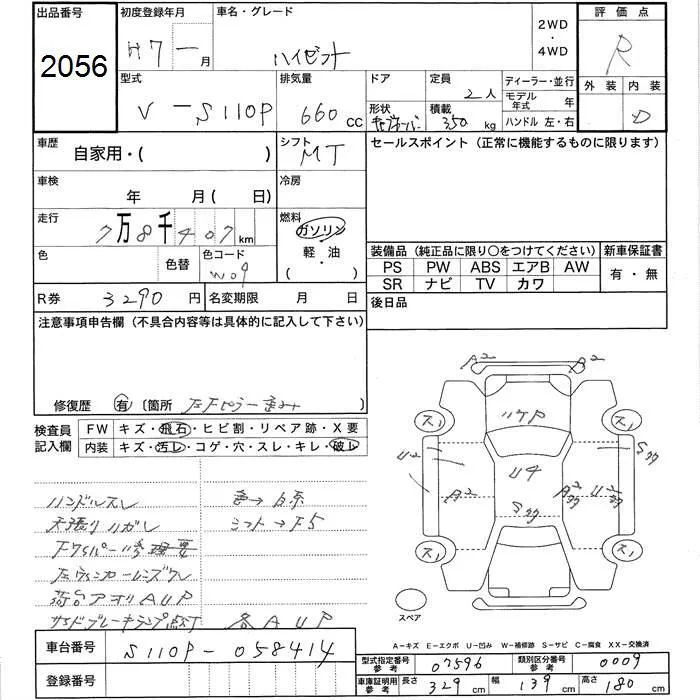 出品番号 初度登録年月 車名・グレード 2WD ・ 4WD 評価点
2056 H7 ー 月 ハイゼット R
型式 排気量 ドア 定員 ディーラー・並行 外装 内装
V-S110P 660 cc 2人 モデル年式 年 D
形状 積載 350 kg ハンドル 左・右
車歴 自家用・( ) シフト MT セールスポイント (正常に機能するものに限ります)
車検 年 月( 日) 冷房
走行 7万8千407km 燃料 ガソリン 軽・油 ( )
色 色替 色コード W09
装備品 (純正品に限り○をつけてください) 新車保証書
PS PW ABS エアB AW 有・無
SR ナビ TV カワ
R券 3290 円 名変期限 月 日 後日品
注意事項申告欄 (不具合内容等は具体的に記入して下さい)
修復歴 有 〔箇所 左Fピラー歪み
検査員記入欄 FW キズ・飛石・ヒビ割・リペア跡・X要
内装 キズ・汚レ・コゲ・穴・スレ・キレ・破レ
ハンドルスレ 色→白系
天張りハガレ シフト→F5
Fワイパー修理要
左ウィンカーレンズワレ
荷台アオリAUP
サイドブレーキランプ点灯 各AUP
A2 A2
ス1 ハケP ス1
U2 A2 U4 A33 U2 S33
S33
ス1 ス1
スペア
A-キズ E-エクボ U-凹み W-補修跡 S-サビ C-腐食 XX-交換済
車台番号 S110P-058414
登録番号
型式指定番号 参考 07596 類別区分番号 参考 0009
車庫証明用 参考 長さ 329 cm 幅 139 cm 高さ 180 cm